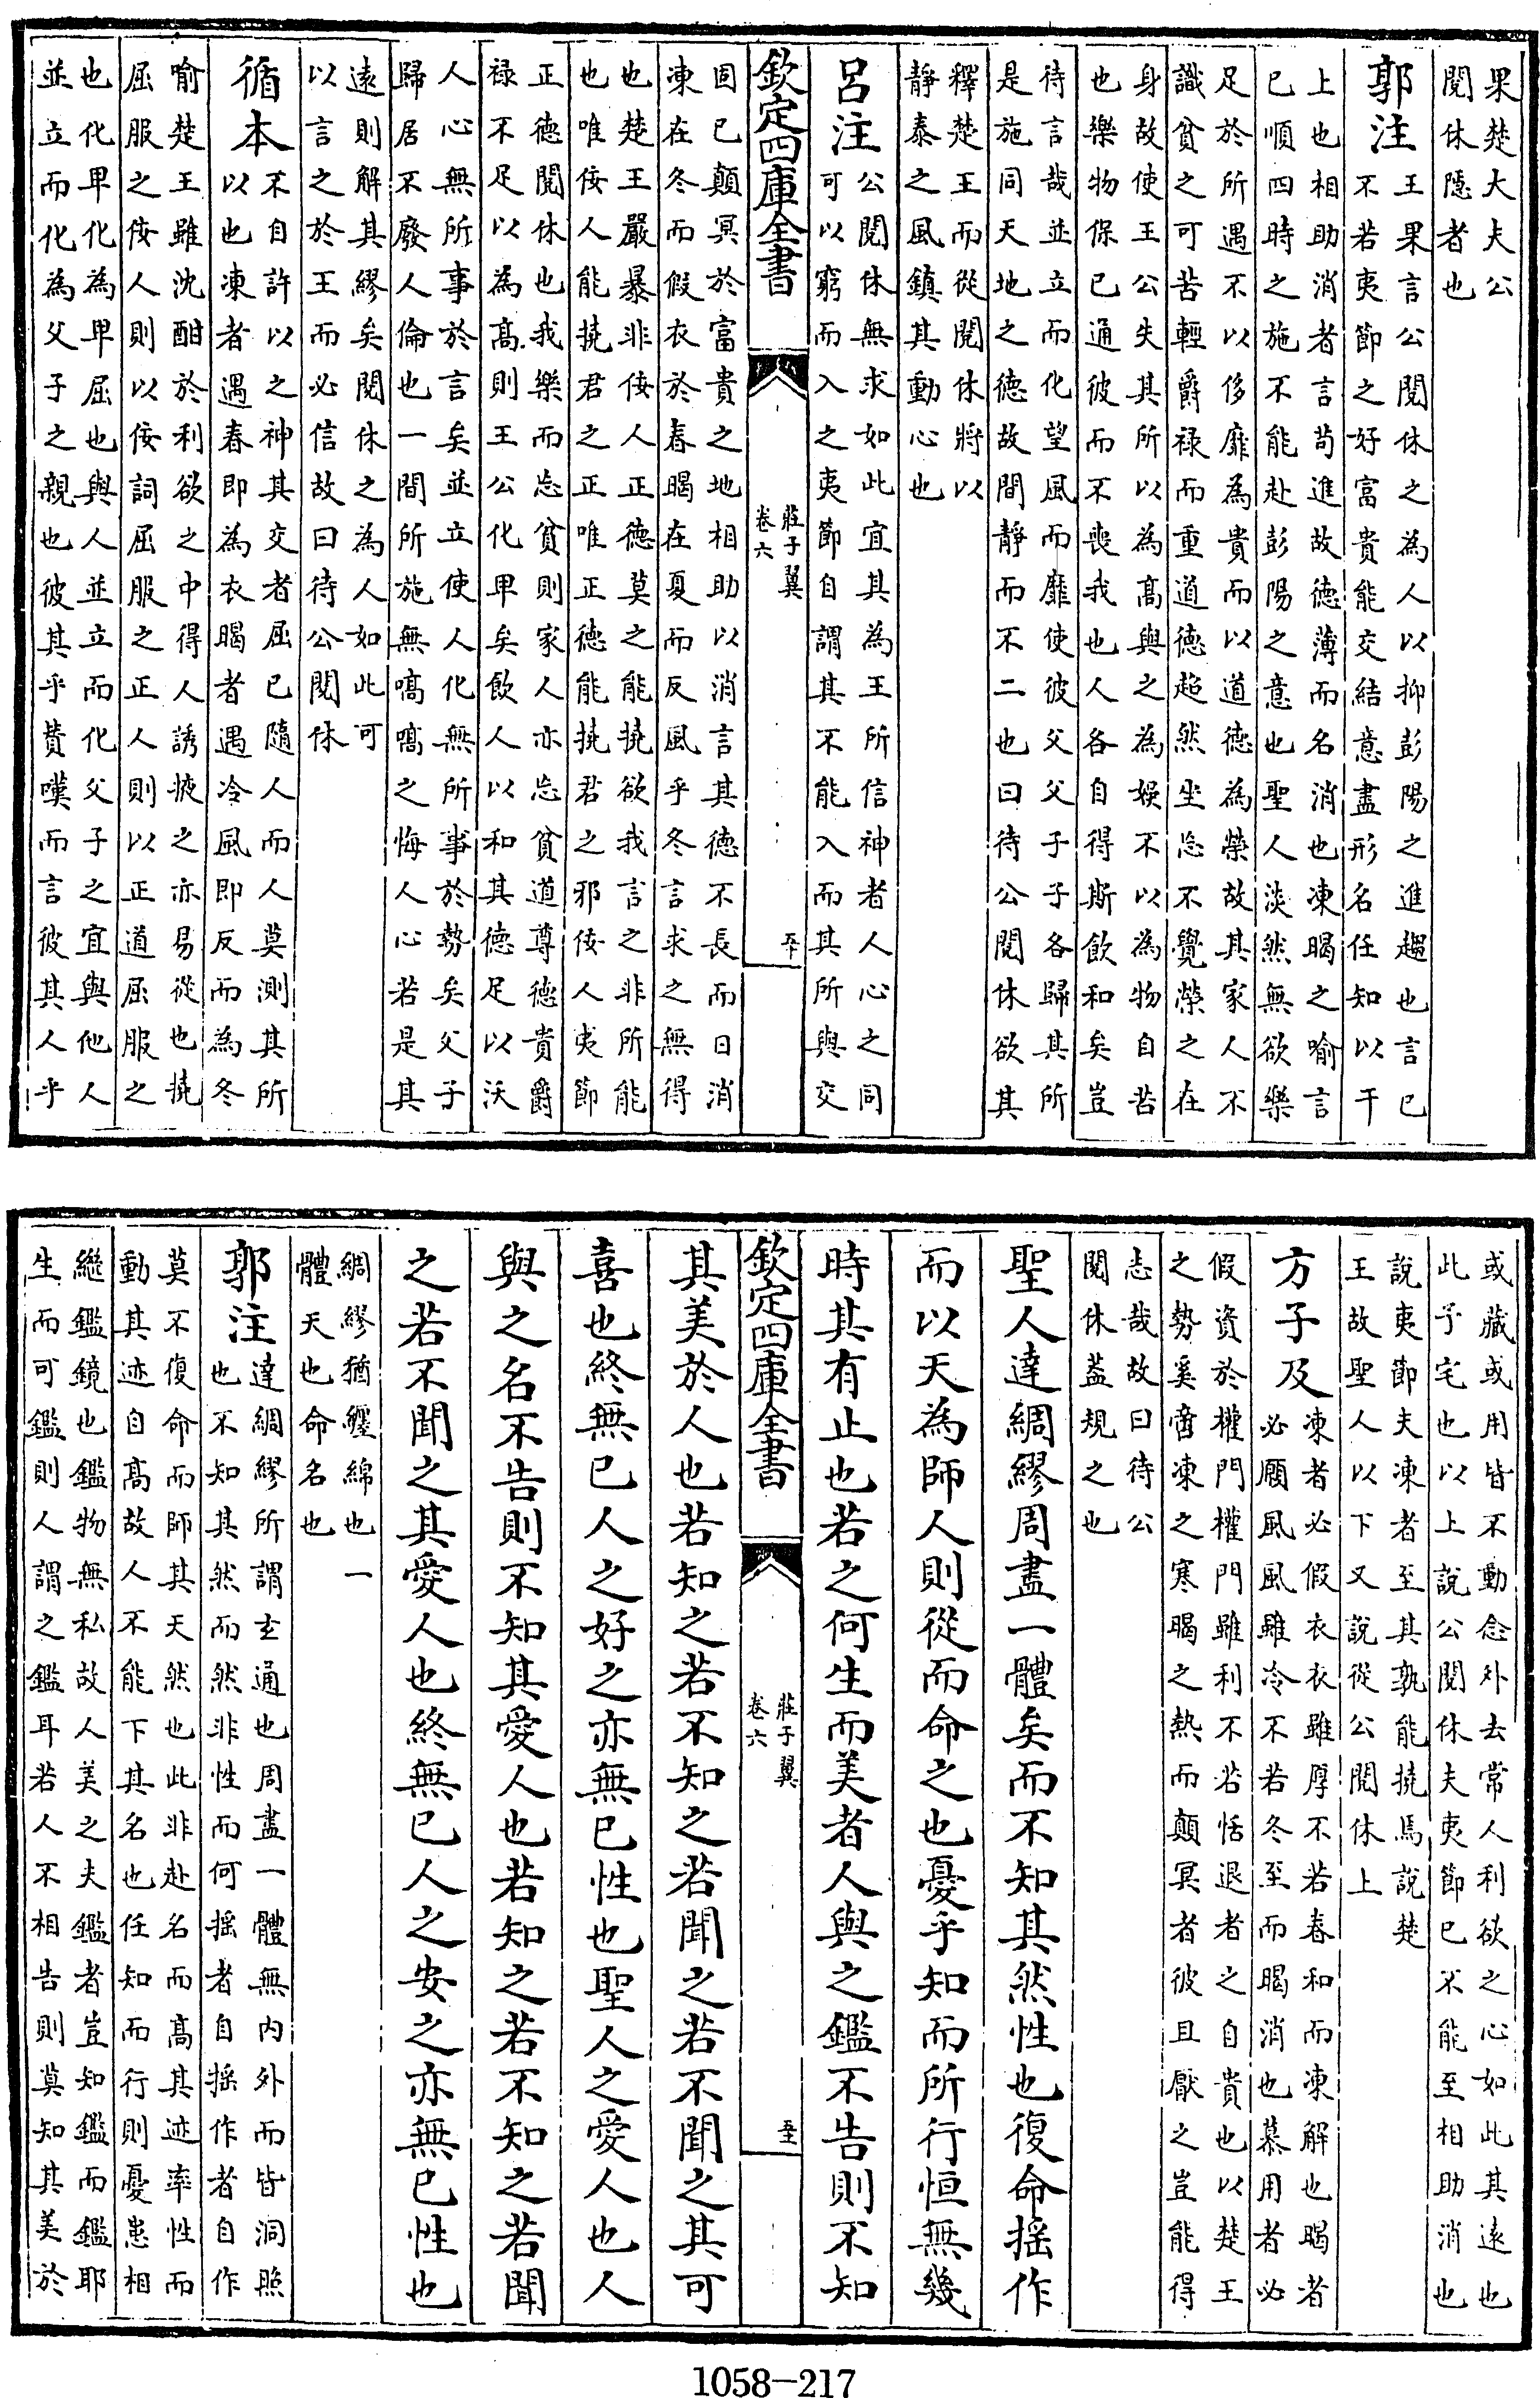 果楚大夫公
閱休隱者也
郭注 王果言公閱休之為人以抑彭陽之進趨也言已
不若夷節之好富貴能交結意盡形名任知以干
上也相助消者言苟進故德薄而名消也凍暍之喻言
已順四時之施不能赴彭陽之意也聖人淡然無欲樂
足於所遇不以侈靡為貴而以道德為榮故其家人不
識貧之可苦輕爵禄而重道德超然坐忘不覺榮之在
身故使王公失其所以為髙與之為娱不以為物自苦
也樂物保已通彼而不喪我也人各自得斯飲和矣豈
待言哉並立而化望風而靡使彼父父子子各歸其所
是施同天地之德故間靜而不二也曰待公閱休欲其
釋楚王而從閱休將以
靜泰之風鎮其動心也
呂注 公閱休無求如此宜其為王所信神者人心之同
可以窮而入之夷節自謂其不能入而其所與交
欽定四庫全書
莊子翼
卷六
五十
固已顛冥於富貴之地相助以消言其德不長而日消
凍在冬而假衣於春暍在夏而反風乎冬言求之無得
也楚王嚴暴非佞人正德莫之能撓欲我言之非所能
也唯佞人能撓君之正唯正德能撓君之邪佞人夷節
正德閱休也我樂而忘貧則家人亦忘貧道尊德貴爵
禄不足以為髙則王公化卑矣飲人以和其德足以沃
人心無所事於言矣並立使人化無所事於勢矣父子
歸居不廢人倫也一間所施無嗃嗃之悔人心若是其
遠則解其繆矣閱休之為人如此可
以言之於王而必信故曰待公閱休
循本 不自許以之神其交者屈已隨人而人莫測其所
以也凍者遇春即為衣暍者遇冷風即反而為冬
喻楚王雖沈酣於利欲之中得人誘掖之亦易從也撓
屈服之佞人則以佞詞屈服之正人則以正道屈服之
也化卑化為卑屈也與人並立而化父子之宜與他人
並立而化為父子之親也彼其乎贊嘆而言彼其人乎
或藏或用皆不動念外去常人利欲之心如此其遠也
此予宅也以上說公閱休夫夷節已不能至相助消也
說夷節夫凍者至其孰能撓焉說楚
王故聖人以下又說從公閱休上
方子及 凍者必假衣衣雖厚不若春和而凍解也暍者
必願風風雖冷不若冬至而暍消也慕用者必
假資於權門權門雖利不若恬退者之自貴也以楚王
之勢奚啻凍之寒暍之熱而顛冥者彼且厭之豈能得
志哉故曰待公
閱休葢規之也
聖人達綢繆周盡一體矣而不知其然性也復命揺作
而以天為師人則從而命之也憂乎知而所行恒無幾
時其有止也若之何生而美者人與之鑑不告則不知
欽定四庫全書
莊子翼
卷六
五十一
其美於人也若知之若不知之若聞之若不聞之其可
喜也終無已人之好之亦無已性也聖人之愛人也人
與之名不告則不知其愛人也若知之若不知之若聞
之若不聞之其愛人也終無已人之安之亦無已性也
綢繆猶纒綿也一
體天也命名也
郭注 達綢繆所謂玄通也周盡一體無內外而皆洞照
也不知其然而然非性而何揺者自揺作者自作
莫不復命而師其天然也此非赴名而髙其迹率性而
動其迹自髙故人不能下其名也任知而行則憂患相
繼鑑鏡也鑑物無私故人美之夫鑑者豈知鑑而鑑耶
生而可鑑則人謂之鑑耳若人不相告則莫知其美於
1058-217